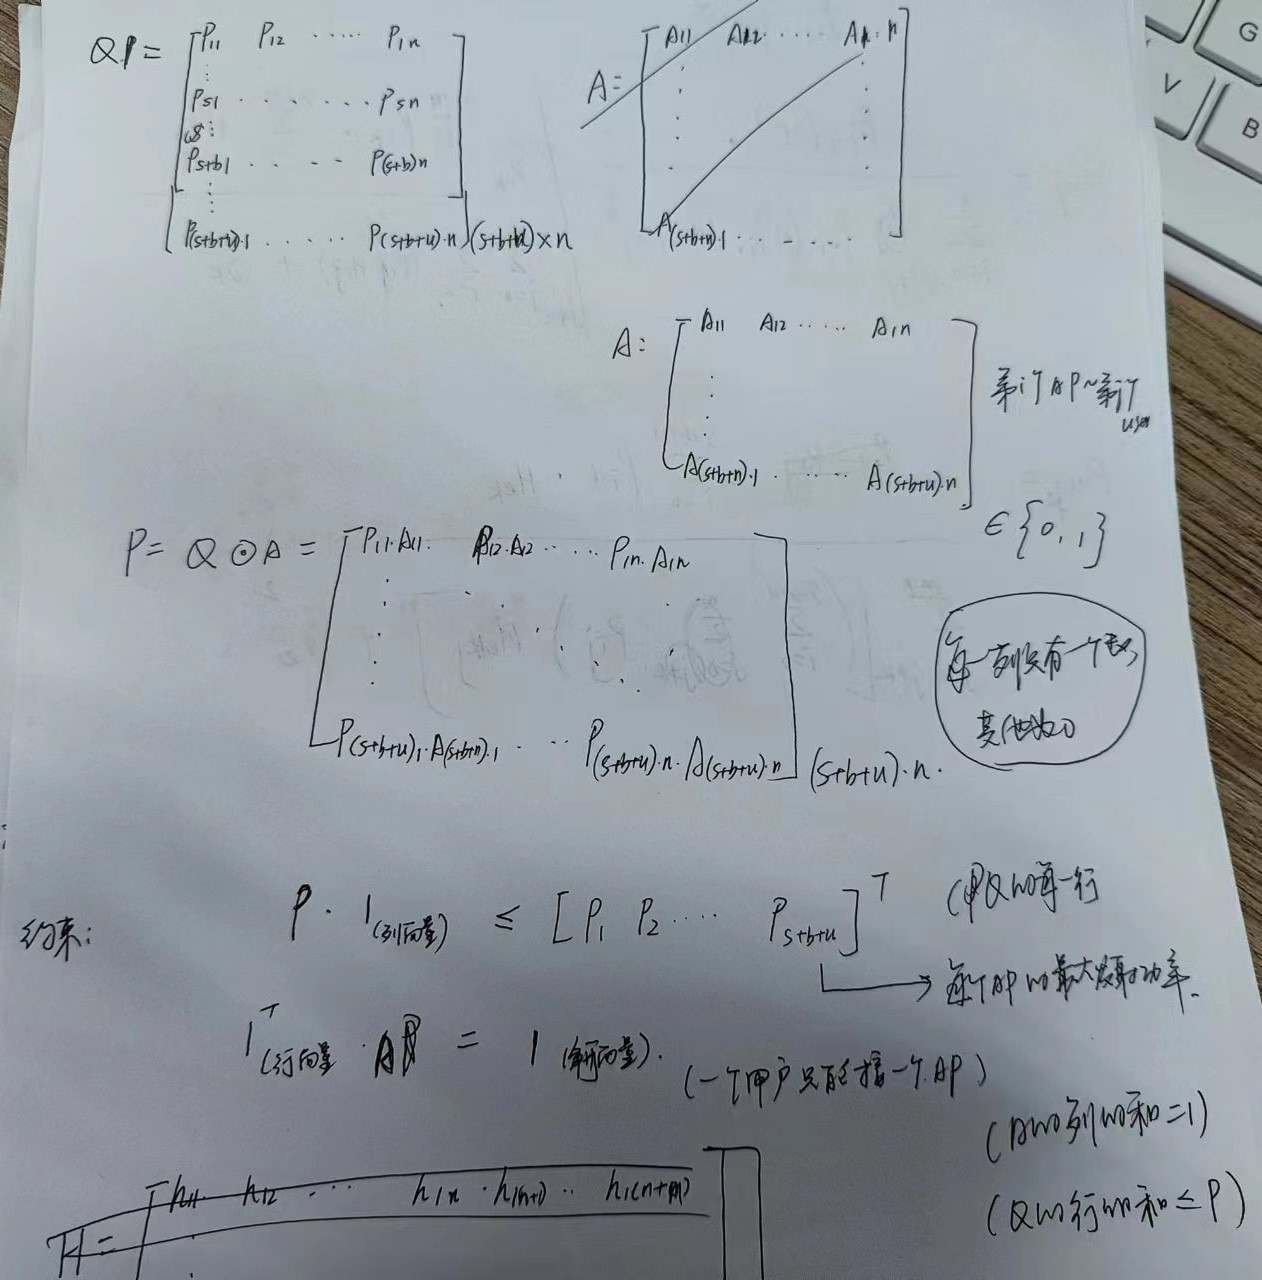 QP = [ P11 P12 ····· P1n
Ps1 · · · · · · · Psn
Ps+b1 · · · · P(s+b)n
P(s+b+u)·1 · · · · · P(s+b+u)·n ] (s+b+u)×n
A = [ A11 A12 ···· A1·n
A(s+b+n)·1 · · · - · · ·
A: [ A11 A12 ····· A1n
A(s+b+n)·1 · · · · · · A(s+b+u)·n ]
第i个AP~第j个
user
∈ {0, 1}
P = Q ⊙ A = [ P11·A11· P12·A12 ·· ··· P1n·A1n
P(s+b+u)1·A(s+b+n)·1 · · ·· P(s+b+u)·n·A(s+b+u)·n ] (s+b+u)·n·
每一列只有一个
其他为0
约束:
P · 1(列向量) ≤ [P1 P2 ···· Ps+b+u]T
(Q的每一行
→ 每个AP的最大发射功率.
1T(行向量 · A = 1 (行向量).
(一个用户只能接一个AP)
(A的列的和=1)
(Q的行的和≤P)
H = [ h11 h12 ··· h1n · h1(n+1) ·· h1(n+m)
G
V
B